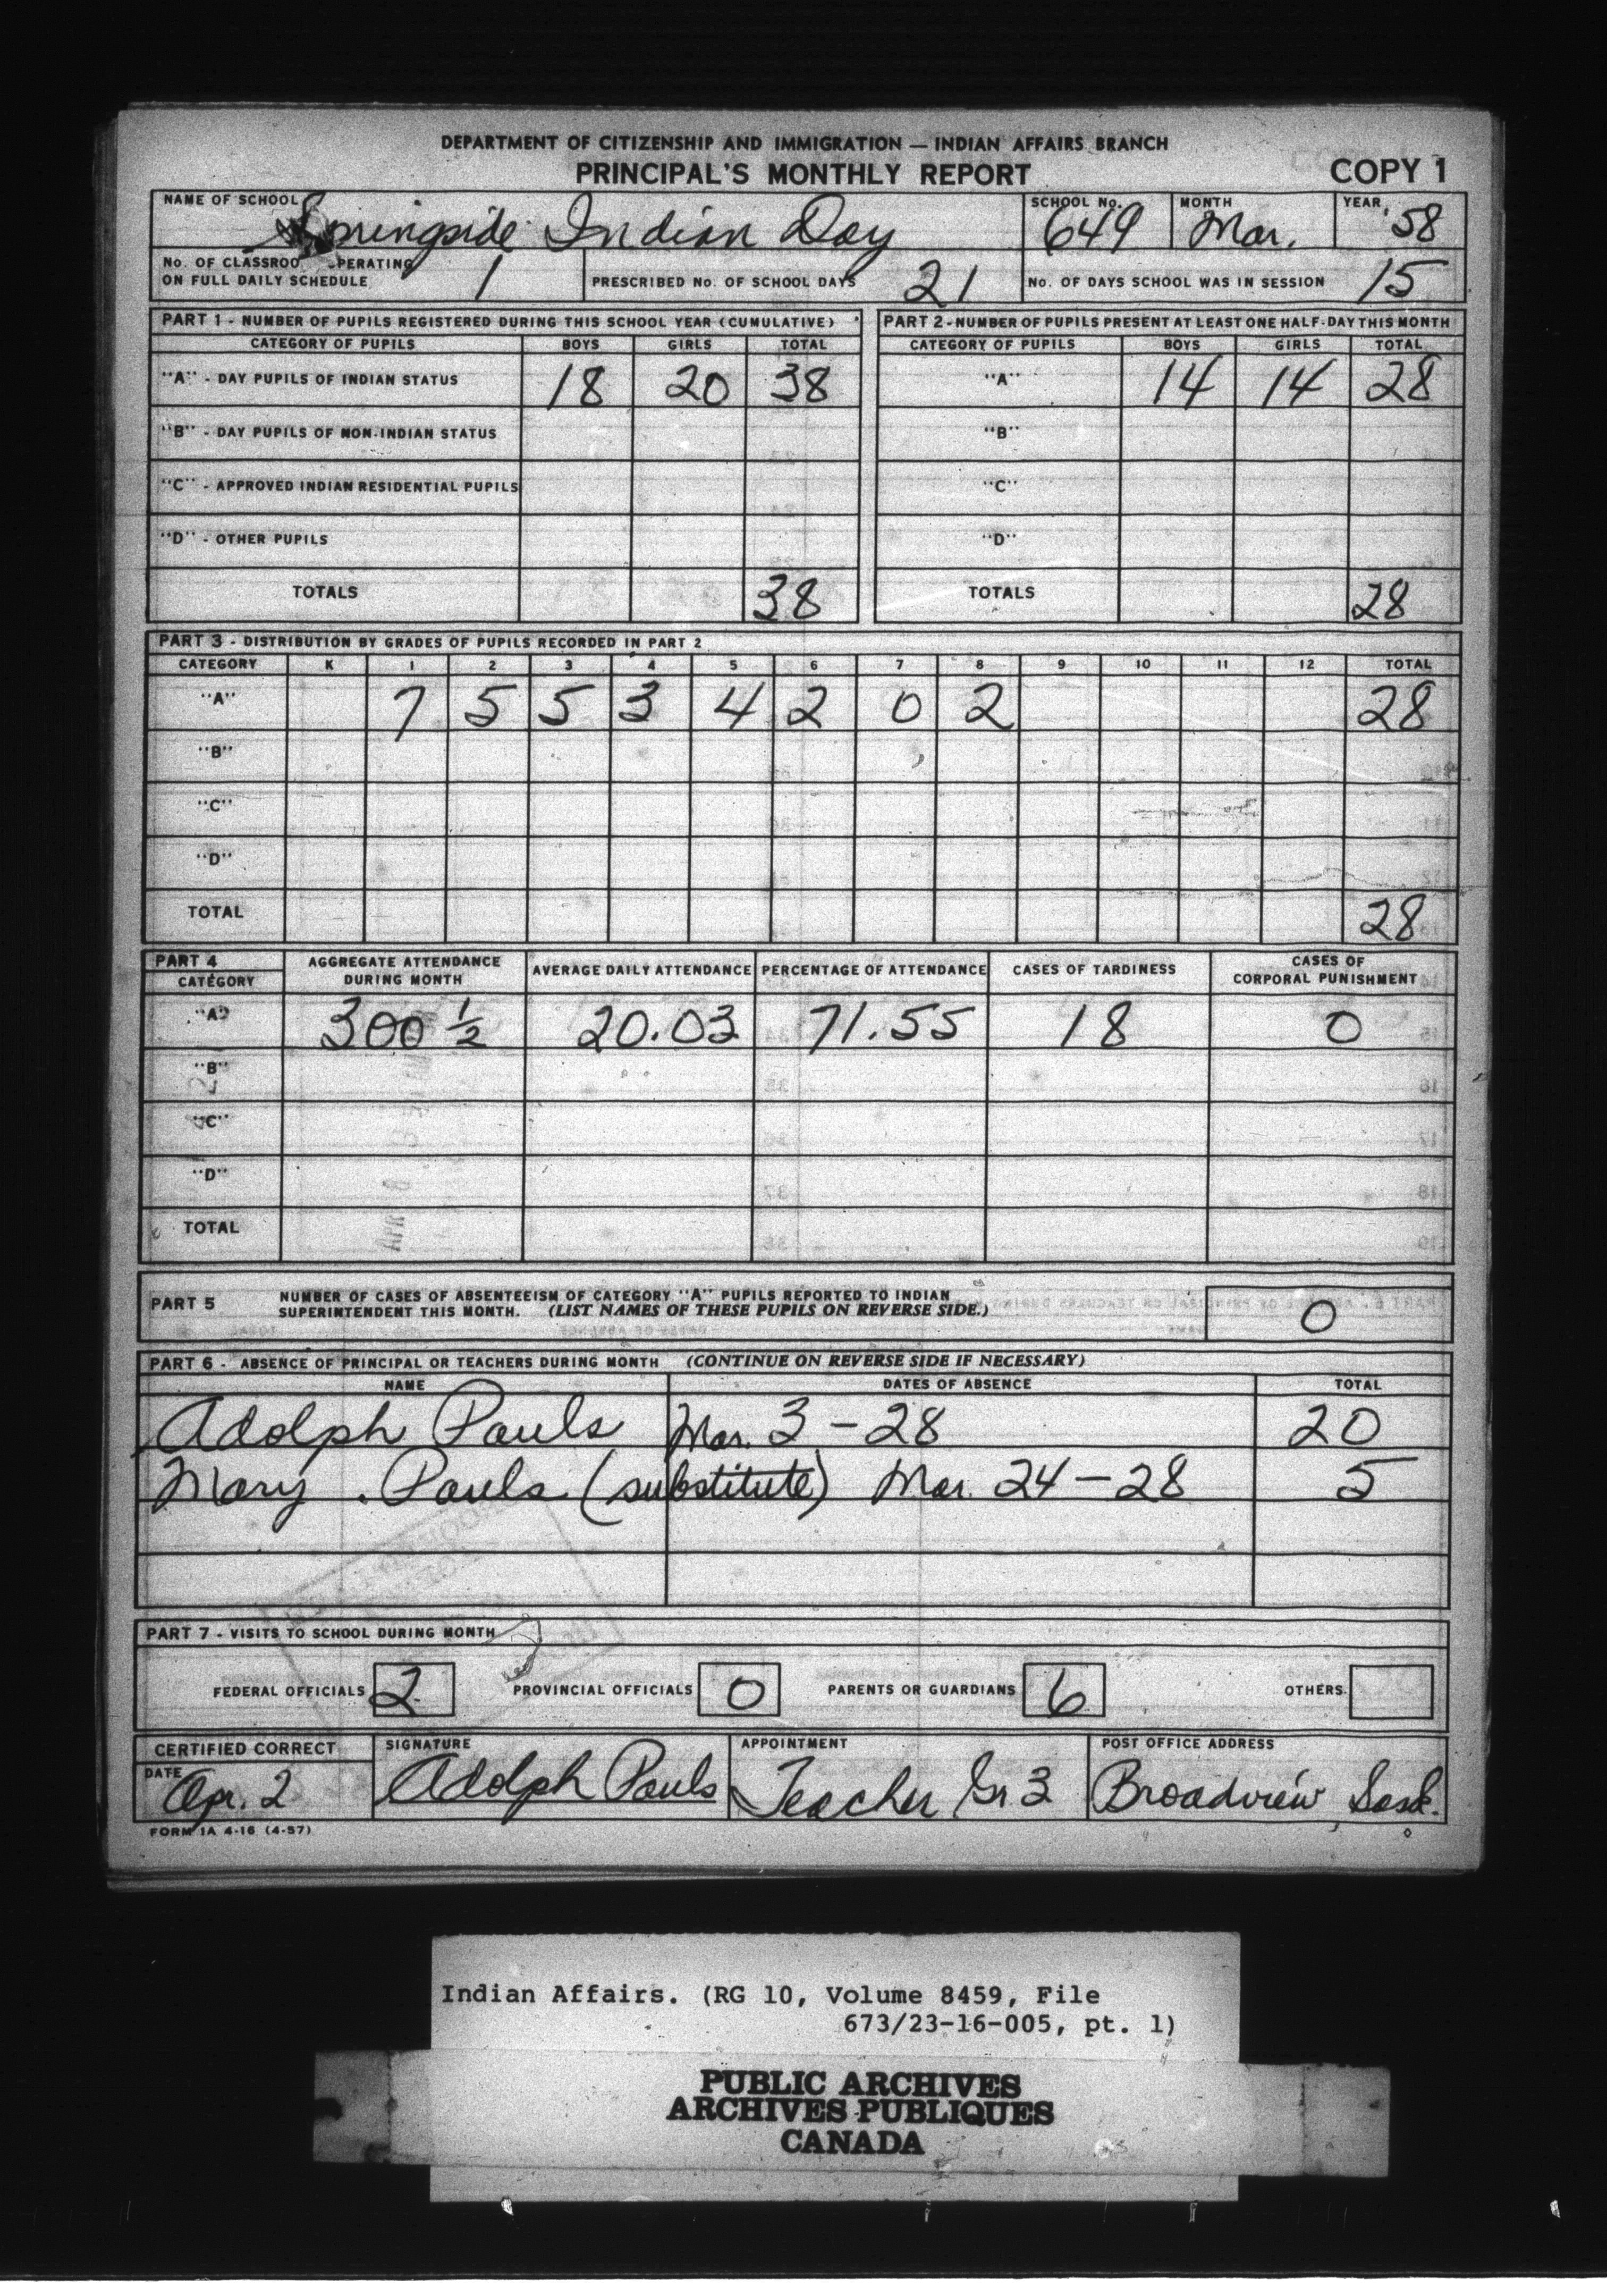 DEPARTMENT OF CITIZENSHIP AND IMMIGRATION — INDIAN AFFAIRS BRANCH
PRINCIPAL'S MONTHLY REPORT COPY 1
NAME OF SCHOOL Springside Indian Day SCHOOL No. 649 MONTH Mar. YEAR '58
No. OF CLASSROO PERATING ON FULL DAILY SCHEDULE 1 PRESCRIBED No. OF SCHOOL DAYS 21 No. OF DAYS SCHOOL WAS IN SESSION 15
PART 1 - NUMBER OF PUPILS REGISTERED DURING THIS SCHOOL YEAR (CUMULATIVE) PART 2 - NUMBER OF PUPILS PRESENT AT LEAST ONE HALF-DAY THIS MONTH
CATEGORY OF PUPILS BOYS GIRLS TOTAL CATEGORY OF PUPILS BOYS GIRLS TOTAL
"A" - DAY PUPILS OF INDIAN STATUS 18 20 38 "A" 14 14 28
"B" - DAY PUPILS OF NON-INDIAN STATUS "B"
"C" - APPROVED INDIAN RESIDENTIAL PUPILS "C"
"D" - OTHER PUPILS "D"
TOTALS 38 TOTALS 28
PART 3 - DISTRIBUTION BY GRADES OF PUPILS RECORDED IN PART 2
CATEGORY K 1 2 3 4 5 6 7 8 9 10 11 12 TOTAL
"A" 7 5 5 3 4 2 0 2 28
"B"
"C"
"D"
TOTAL 28
PART 4 CATEGORY AGGREGATE ATTENDANCE DURING MONTH AVERAGE DAILY ATTENDANCE PERCENTAGE OF ATTENDANCE CASES OF TARDINESS CASES OF CORPORAL PUNISHMENT
"A" 300 ½ 20.03 71.55 18 0
"B"
"C"
"D"
TOTAL
PART 5 NUMBER OF CASES OF ABSENTEEISM OF CATEGORY "A" PUPILS REPORTED TO INDIAN
SUPERINTENDENT THIS MONTH. (LIST NAMES OF THESE PUPILS ON REVERSE SIDE.) 0
PART 6 - ABSENCE OF PRINCIPAL OR TEACHERS DURING MONTH (CONTINUE ON REVERSE SIDE IF NECESSARY)
NAME DATES OF ABSENCE TOTAL
Adolph Pauls Mar. 3 - 28 20
Mary Pauls (substitute) Mar. 24 - 28 5
PART 7 - VISITS TO SCHOOL DURING MONTH
FEDERAL OFFICIALS 2 PROVINCIAL OFFICIALS 0 PARENTS OR GUARDIANS 6 OTHERS
CERTIFIED CORRECT SIGNATURE APPOINTMENT POST OFFICE ADDRESS
DATE Apr. 2 Adolph Pauls Teacher Gr. 3 Broadview Sask.
FORM 1A 4-16 (4-57)
Indian Affairs. (RG 10, Volume 8459, File
673/23-16-005, pt. 1)
PUBLIC ARCHIVES
ARCHIVES PUBLIQUES
CANADA